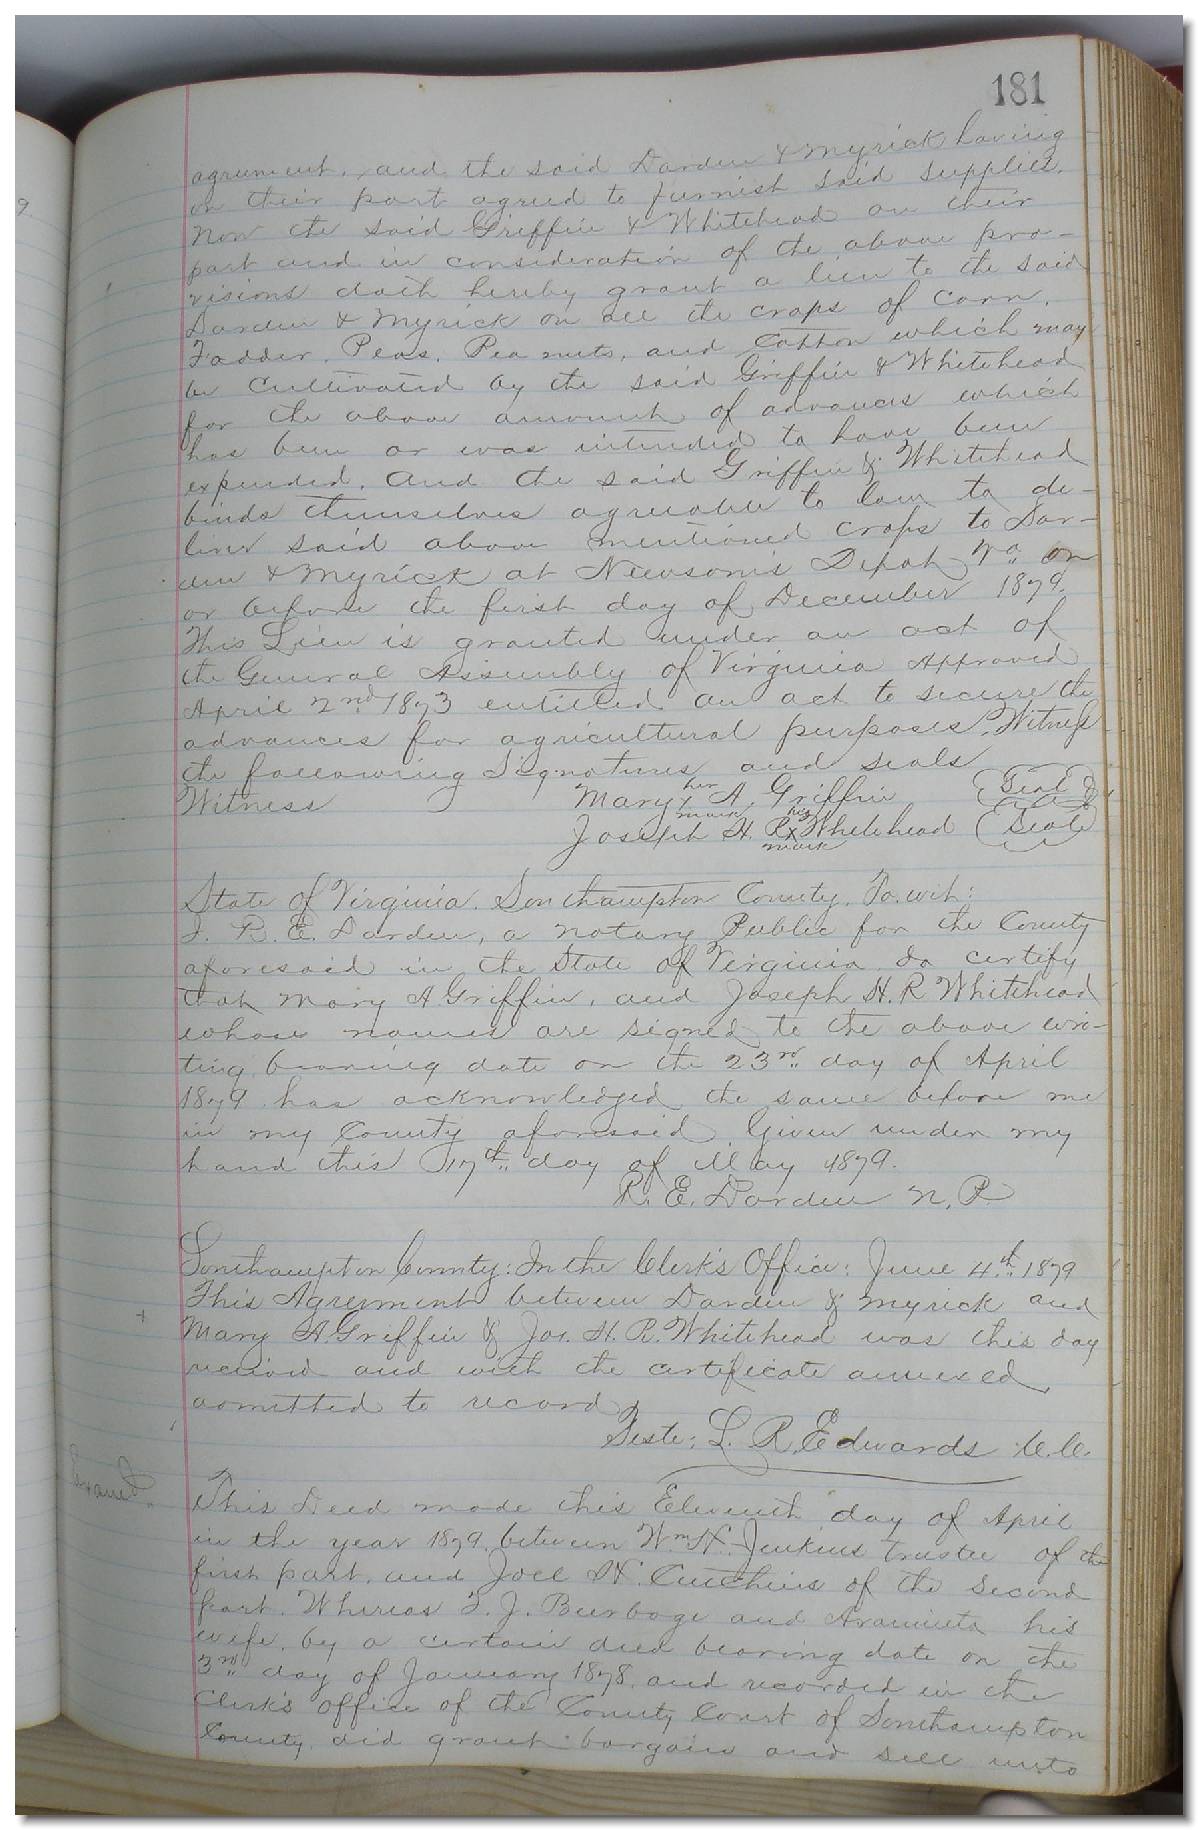 181
9.
agreement, and the said Darden & Myrick having
on their part agreed to furnish said supplies.
Now the said Griffin & Whitehead on their
part and in consideration of the above pro-
visions doth hereby grant a lien to the said
Darden & Myrick on all the crops of Corn,
Fodder, Peas, Pea nuts, and Cotton which may
be cultivated by the said Griffin & Whitehead
for the above amount of advances which
has been or was intended to have been
expended. And the said Griffin & Whitehead
binds themselves agreeable to law to de-
liver said above mentioned crops to Dar-
den & Myrick at Newsom's Depot Va. on
or before the first day of December 1879.
This Lien is granted under an act of
the General Assembly of Virginia Approved
April 2nd 1873 entitled an act to secure the
advances for agricultural purposes. Witness
the following signatures and seals
Witness Mary her x mark A. Griffin (Seal)
Joseph H. R. his x mark Whitehead (Seal)
State of Virginia. Southampton County, To wit:
I. R. E. Darden, a notary Public for the County
aforesaid in the State of Virginia do certify
that Mary A Griffin, and Joseph H. R Whitehead
whose names are signed to the above wri-
ting bearing date on the 23rd day of April
1879 has acknowledged the same before me
in my County aforesaid. Given under my
hand this 17th day of May 1879.
R. E. Darden N. P.
Southampton County: In the Clerk's Office: June 4th 1879
This Agreement between Darden & Myrick and
+
Mary A Griffin & Jos. H. R. Whitehead was this day
received and with the certificate annexed
admitted to record
Teste: L. R. Edwards C.C.
Examd.
This Deed made this Eleventh day of April
in the year 1879, between Wm H. Jenkins trustee of the
first part, and Joel H. Cutchins of the second
part. Whereas T. J. Burbage and Araminta his
wife, by a certain deed bearing date on the
3rd day of January 1878, and recorded in the
Clerk's office of the County Court of Southampton
County did grant bargain and sell unto